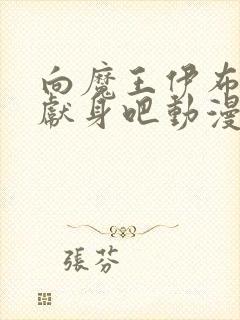 向魔王伊布
獻身吧動漫
張芬